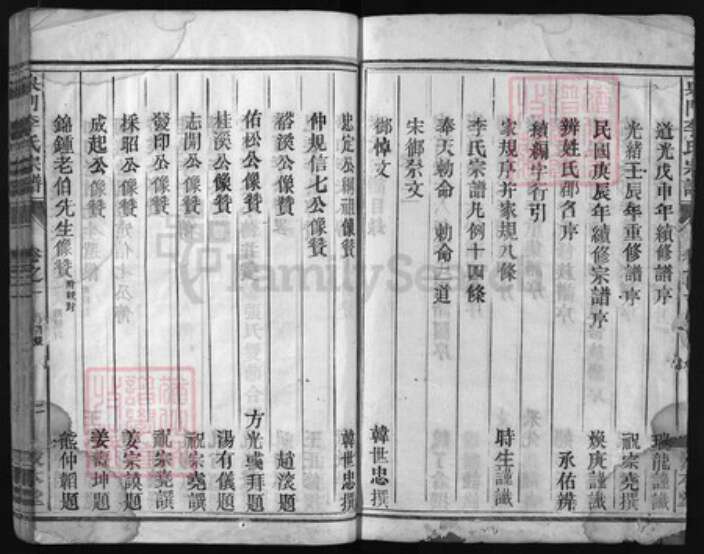 道光戊申年續修譜序 龍謹識
光緒壬辰年重修譜序 祝宗堯撰
民國庚辰年續修宗譜序 煥庚謹識
辨姓氏郡名序 永佑辨
續編字行引
家規序并家規八條 時生謹識
李氏宗譜凡例十四條
奉天勅命 勅命三道
宋御祭文
御悼文 韓世忠撰
忠定公稱祖像贊 韓世忠撰
仲規信七公像贊
裕溪公像贊 趙淡題
佑松公像贊 方光彧拜題
桂溪公像贊 湯有儀題
志開公像贊 祝宗堯譔
發印公像贊 祝宗堯譔
採昭公像贊 姜宗謨題
成起公像贊 姜壽坤題
錦鍾老伯先生像贊 附輓對 熊仲韜題
李氏宗譜 卷之一
FamilySearch